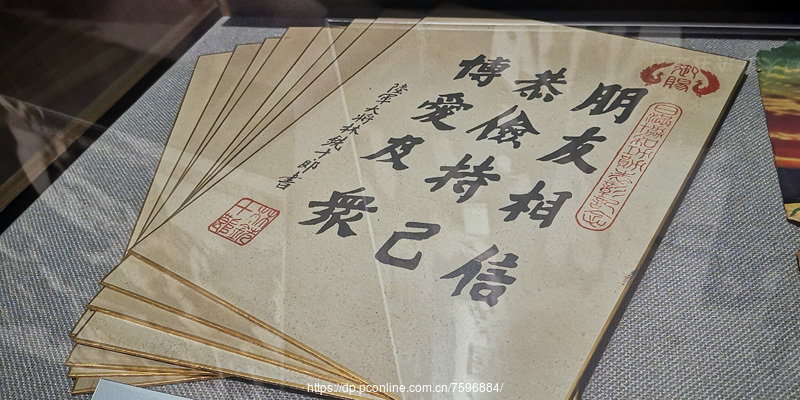 御賜
朋友相信
恭儉持己
博愛及衆
陸軍大將林銑十郎書
https://dp.pconline.com.cn/7596884/